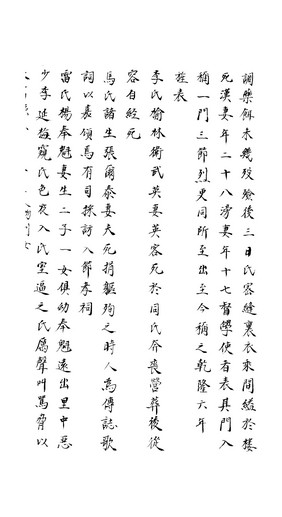 調藥餌木幾歿殮後三日氏密縫裏衣來間縊於樓
死漢妻年二十八滂妻年十七督學使者表其門入
稱一門三節烈更同所至出至今稱之乾隆六年
旌表
李氏榆林衛武英妻英客死於同氏奔喪營葬後從
容自縊死
馬氏諸生張爾泰妻夫死捐軀殉之時人為傳誌歌
詞以裹頌焉有司採訪入節孝祠
雷氏楊奉魁妻生二子一女俱幼奉魁遠出里中惡
少李延梅窺氏色夜入氏室逼之氏厲聲叫罵脅以